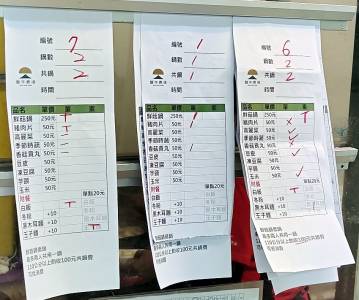 編號 7
鍋數 2
共鍋 2
時間
品名 單價 葷 素
鮮菇鍋 250元
豬肉片 50元
高麗菜 50元
季節時蔬 50元
香菇貢丸 50元
豆皮 50元
凍豆腐 50元
芋頭 50元
玉米 50元
附餐 單點20元
白飯
冬粉 +10
黑木耳麵 +10
王子麵 +10
編號 1
鍋數 1
共鍋 1
時間
品名 單價 葷 素
鮮菇鍋 250元
豬肉片 50元
高麗菜 50元
季節時蔬 50元
香菇貢丸 50元
豆皮 50元
凍豆腐 50元
芋頭 50元
玉米 50元
附餐 單點20元
白飯
冬粉 +10
黑木耳麵 +10
王子麵 +10
編號 6
鍋數 2
共鍋 2
時間
品名 單價 葷 素
鮮菇鍋 250元
豬肉片 50元
高麗菜 50元
季節時蔬 50元
香菇貢丸 50元
豆皮 50元
凍豆腐 50元
芋頭 50元
玉米 50元
附餐 單點20元
白飯
冬粉 +10
黑木耳麵 +10
王子麵 +10